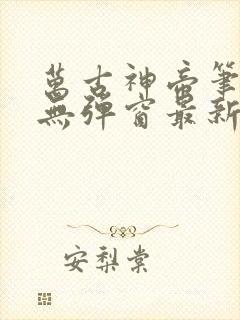 萬古神帝筆
無彈窗最新
安梨棠